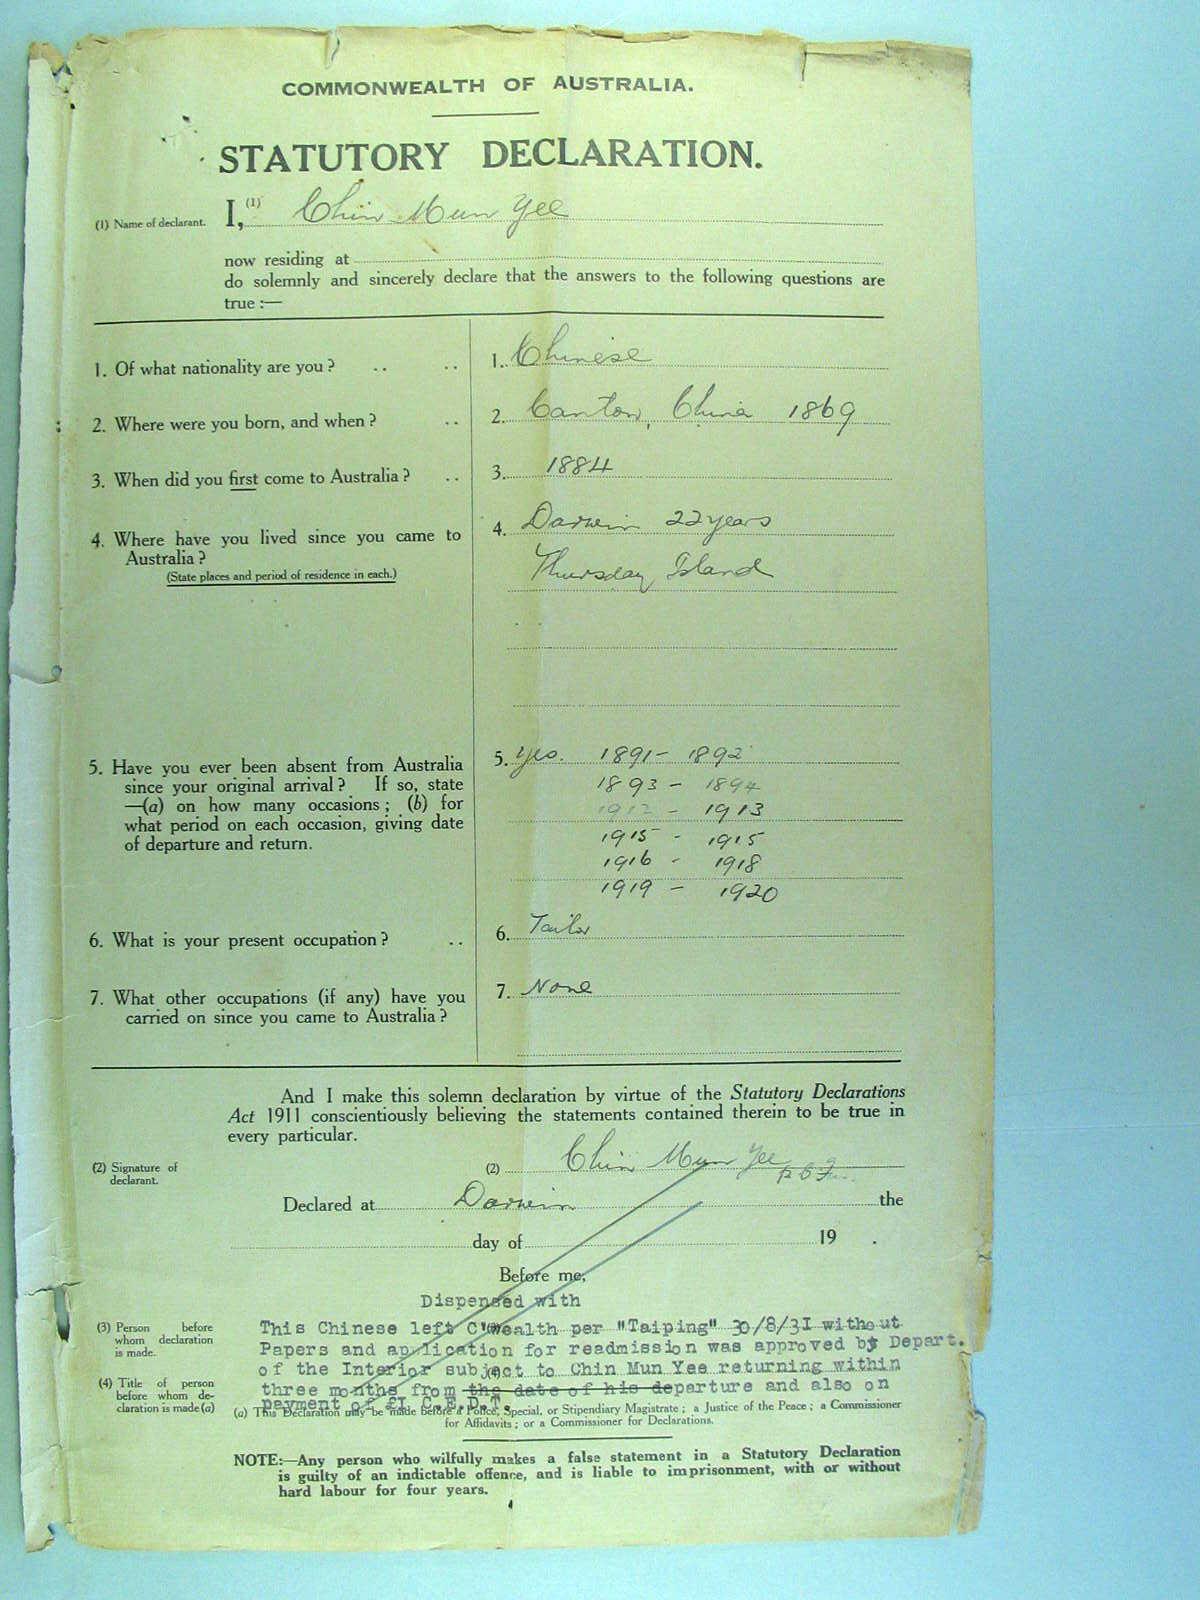 COMMONWEALTH OF AUSTRALIA.
STATUTORY DECLARATION.
(1) Name of declarant. I, (1) Chin Mun Yee
now residing at
do solemnly and sincerely declare that the answers to the following questions are
true :—
1. Of what nationality are you ? .. .. 1. Chinese
2. Where were you born, and when ? .. 2. Canton, China 1869
3. When did you first come to Australia ? .. 3. 1884
4. Where have you lived since you came to 4. Darwin 22 years
Australia ? Thursday Island
(State places and period of residence in each.)
5. Have you ever been absent from Australia 5. Yes. 1891 - 1892
since your original arrival ? If so, state 1893 - 1894
—(a) on how many occasions ; (b) for 1912 - 1913
what period on each occasion, giving date 1915 - 1915
of departure and return. 1916 - 1918
1919 - 1920
6. What is your present occupation ? .. 6. Tailor
7. What other occupations (if any) have you 7. None
carried on since you came to Australia ?
And I make this solemn declaration by virtue of the Statutory Declarations
Act 1911 conscientiously believing the statements contained therein to be true in
every particular.
(2) Signature of declarant. (2) Chin Mun Yee
Declared at Darwin the
day of 19 .
Before me,
Dispensed with
(3) Person before
whom declaration
is made.
This Chinese left C'wealth per "Taiping" 30/8/31 without
Papers and application for readmission was approved by Depart.
of the Interior subject to Chin Mun Yee returning within
(4) Title of person
before whom de-
claration is made (a)
three months from the date of his departure and also on
payment of £1 C.E.D.T.
(a) This Declaration may be made before a Police, Special, or Stipendiary Magistrate ; a Justice of the Peace ; a Commissioner
for Affidavits ; or a Commissioner for Declarations.
NOTE:—Any person who wilfully makes a false statement in a Statutory Declaration
is guilty of an indictable offence, and is liable to imprisonment, with or without
hard labour for four years.